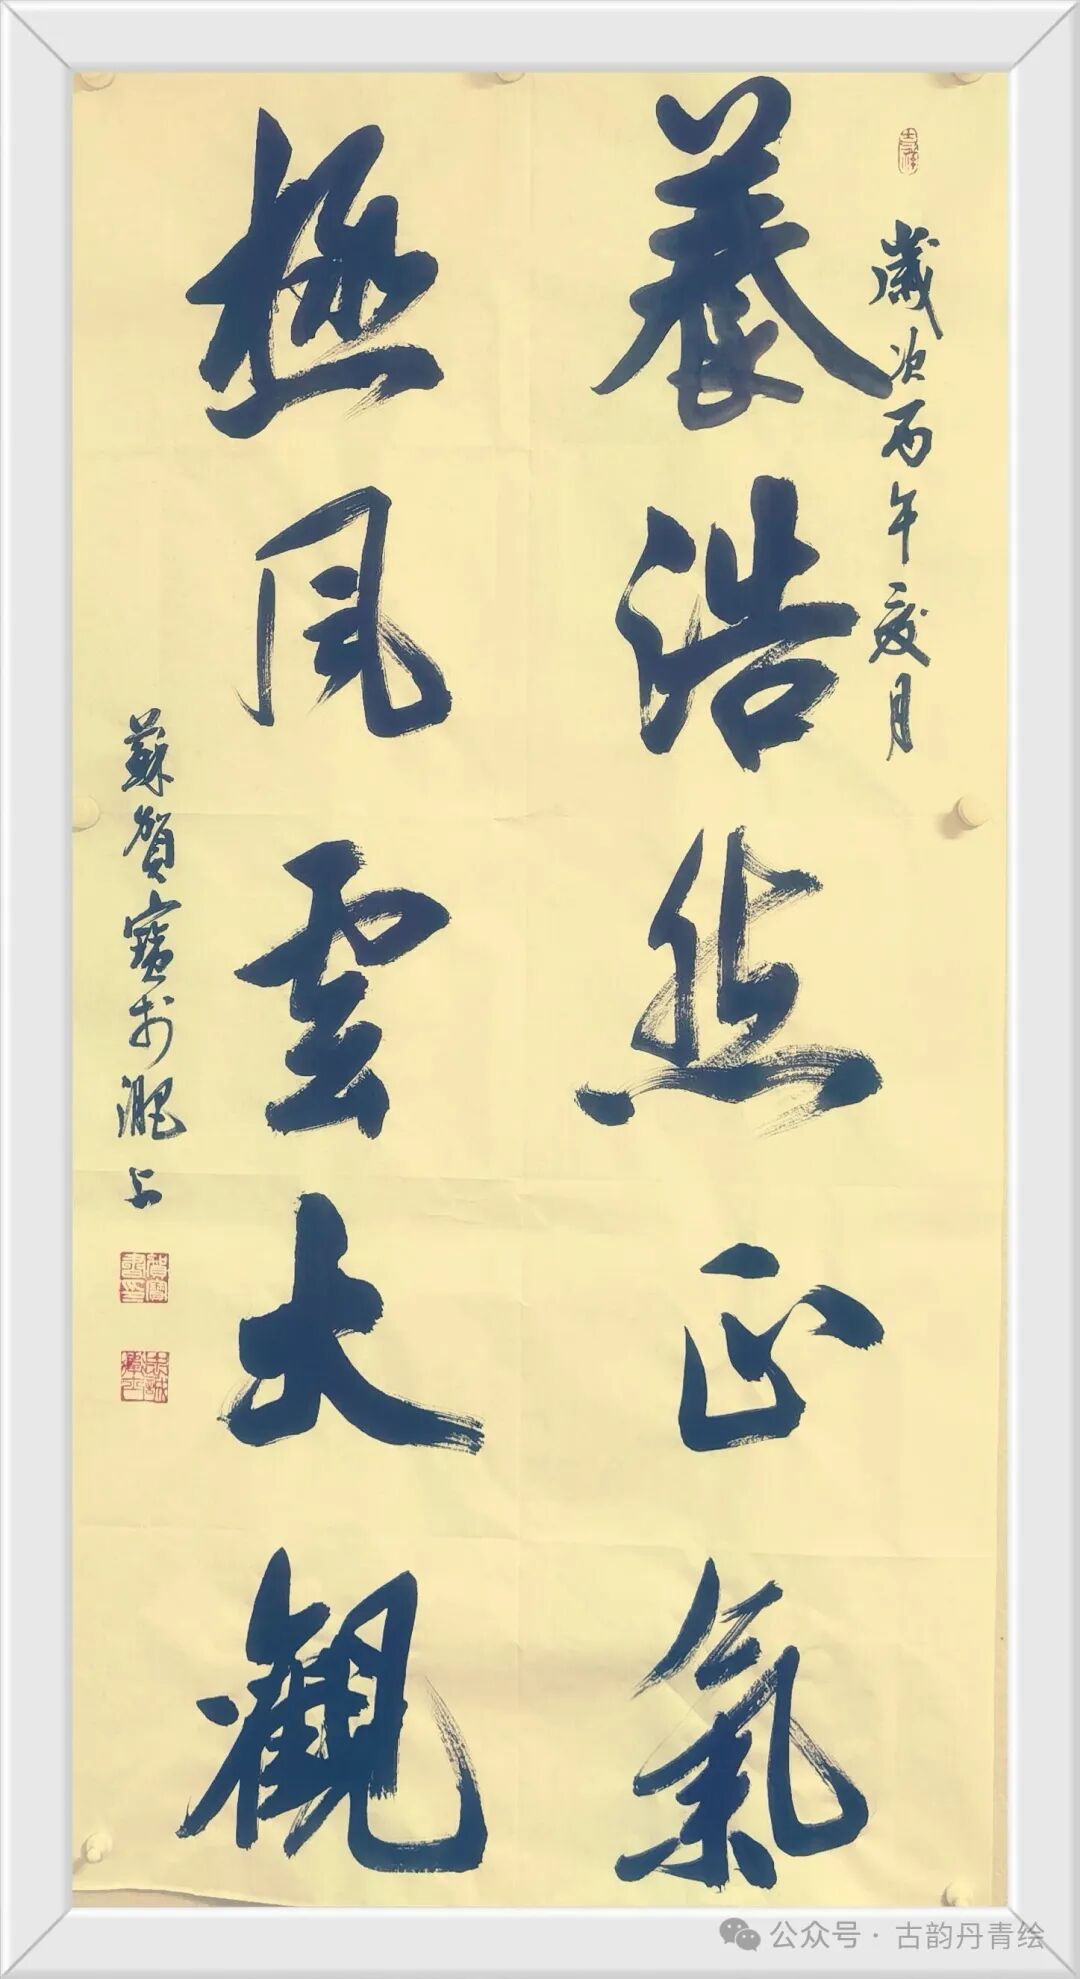 歲次丙午夏月
養浩然正氣
極風雲大觀
蘇賀寶於淝上
賀寶書印
公众号·古韵丹青绘